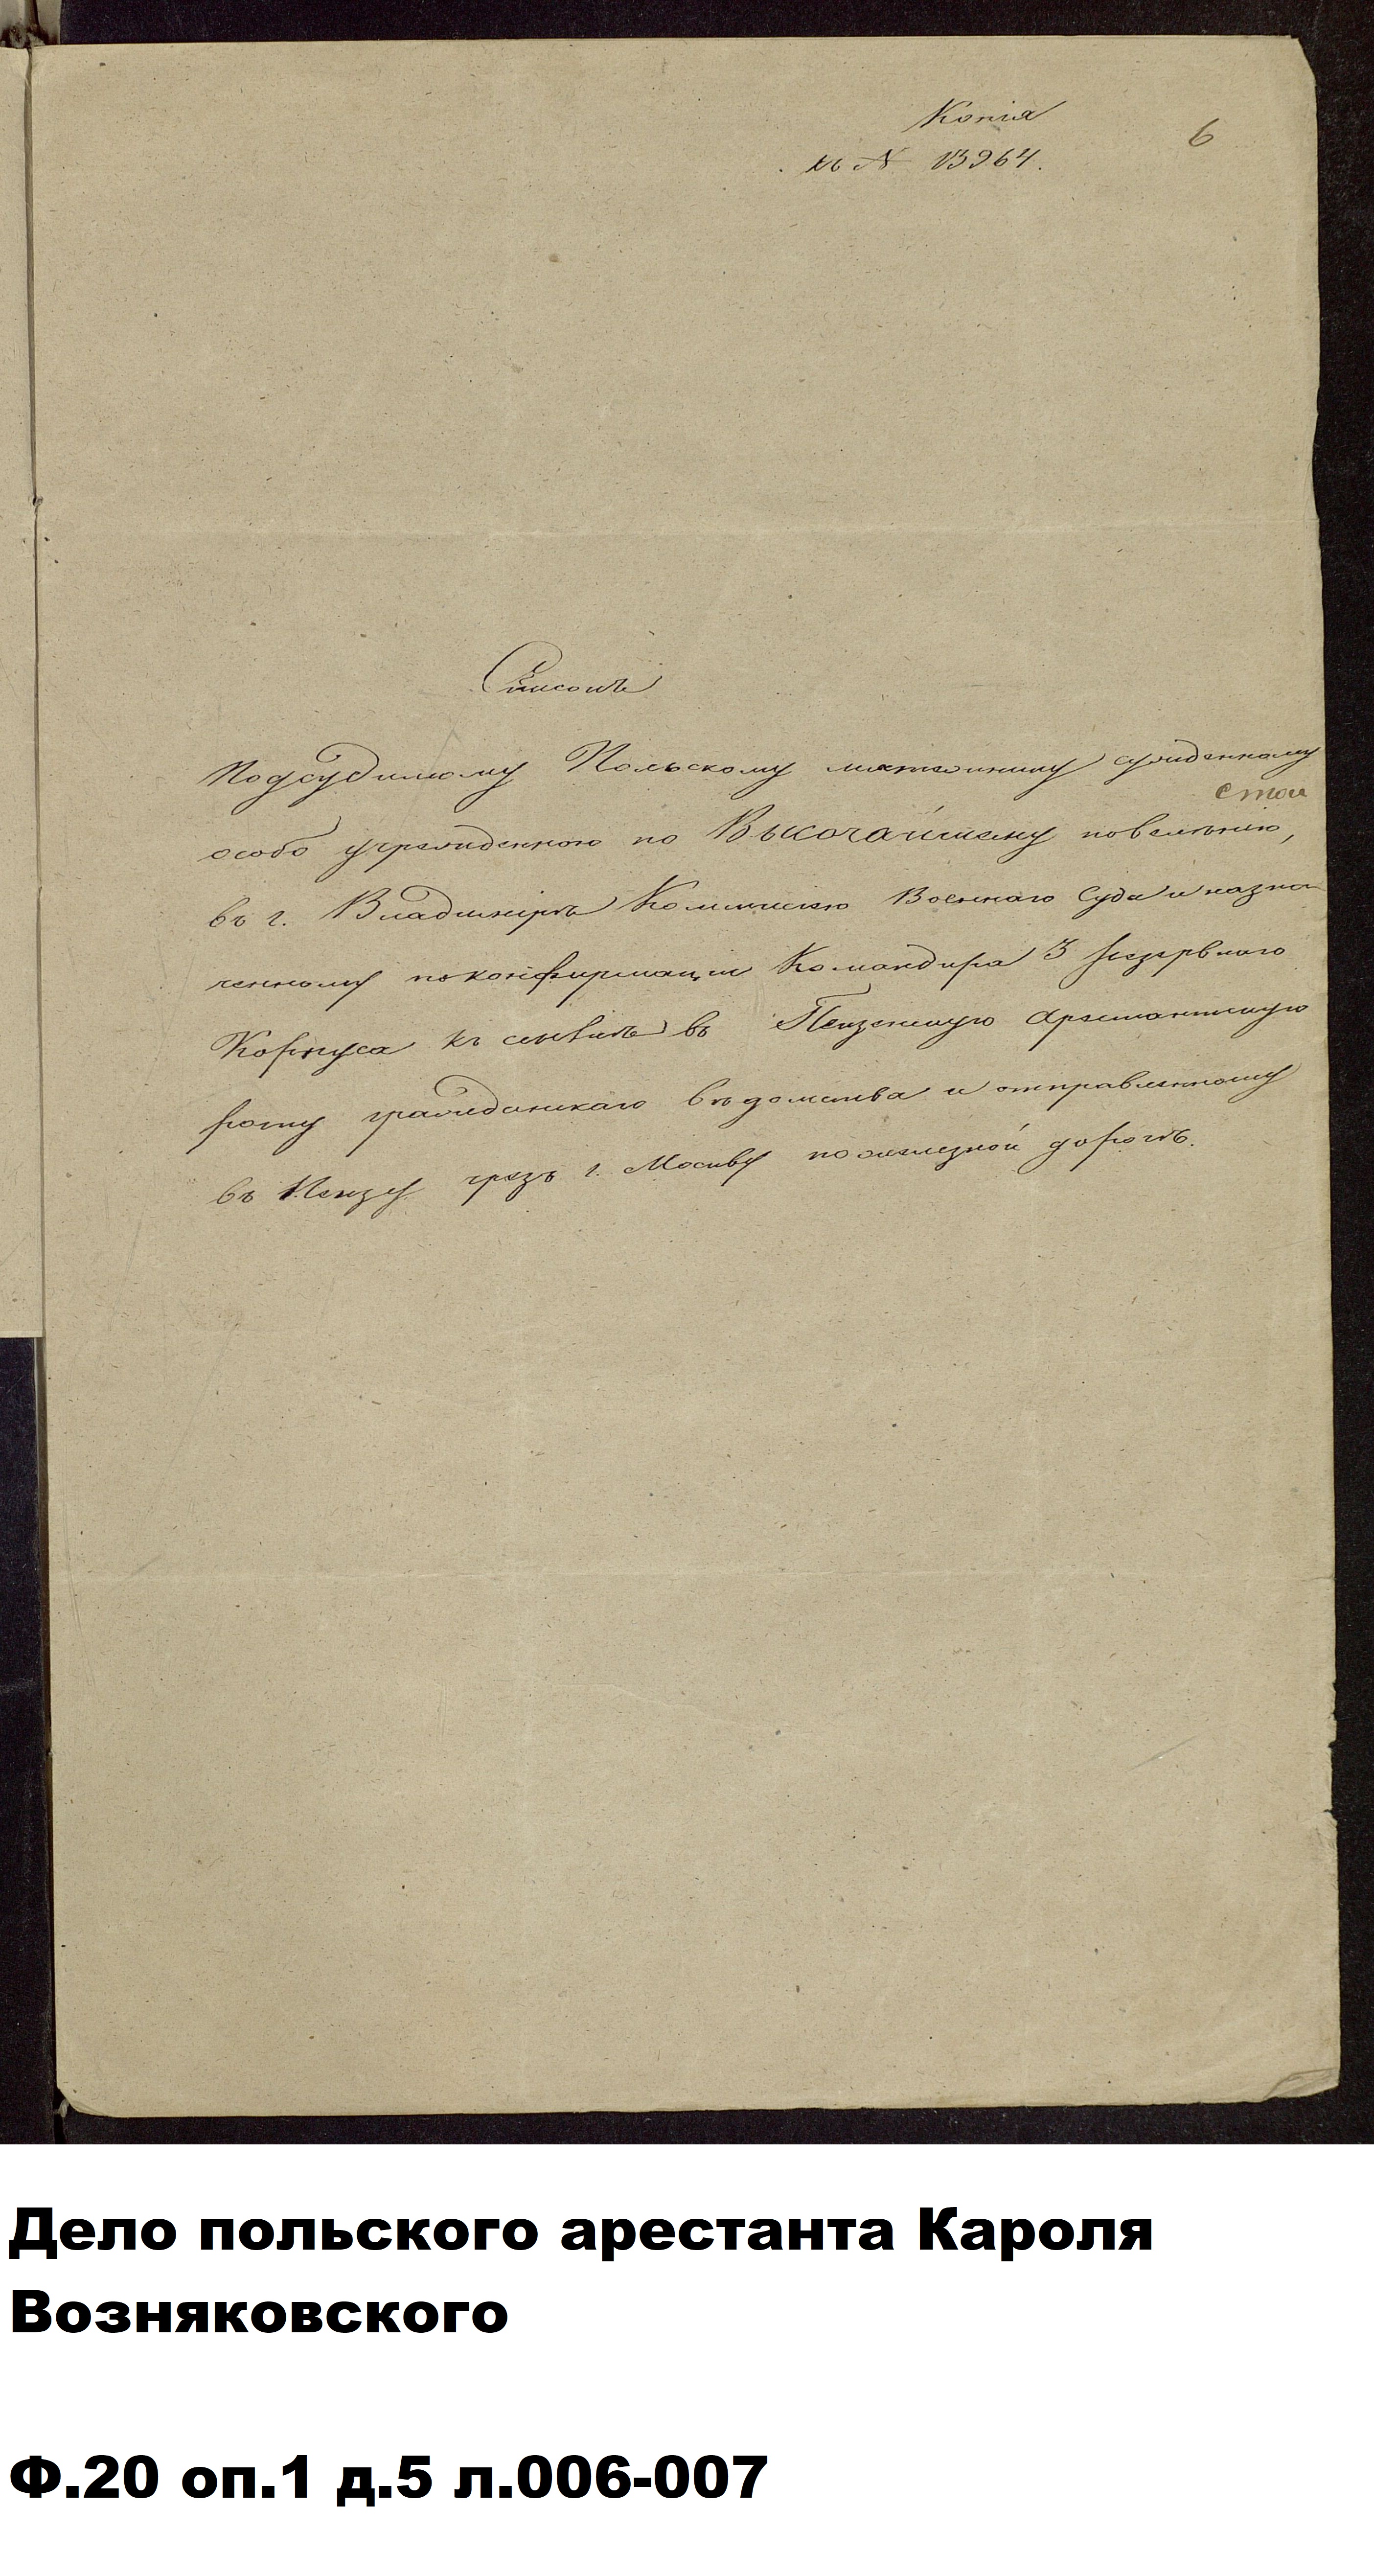 Копія
6
къ № 13964.
Списокъ
Подсудимому Польскому мятежнику сужденному
особо учрежденною по Высочайшему повелѣнію,
въ г. Владимірѣ Коммисіею Военнаго Суда и назна
ченному по конфирмаціи Командира 3 резервнаго
Корпуса къ ссылкѣ въ Пензенскую Арестантскую
роту гражданскаго вѣдомства и отправленному
въ Пензу чрезъ г. Москву по железной дорогѣ.
Дело польского арестанта Кароля
Возняковского
Ф.20 оп.1 д.5 л.006-007